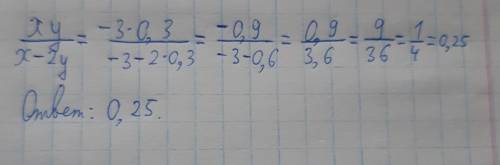 xy/(x-2y) = (-3·0,3)/(-3-2·0,3) = (-0,9)/(-3-0,6) = 0,9/3,6 = 9/36 = 1/4 = 0,25
Ответ: 0,25.